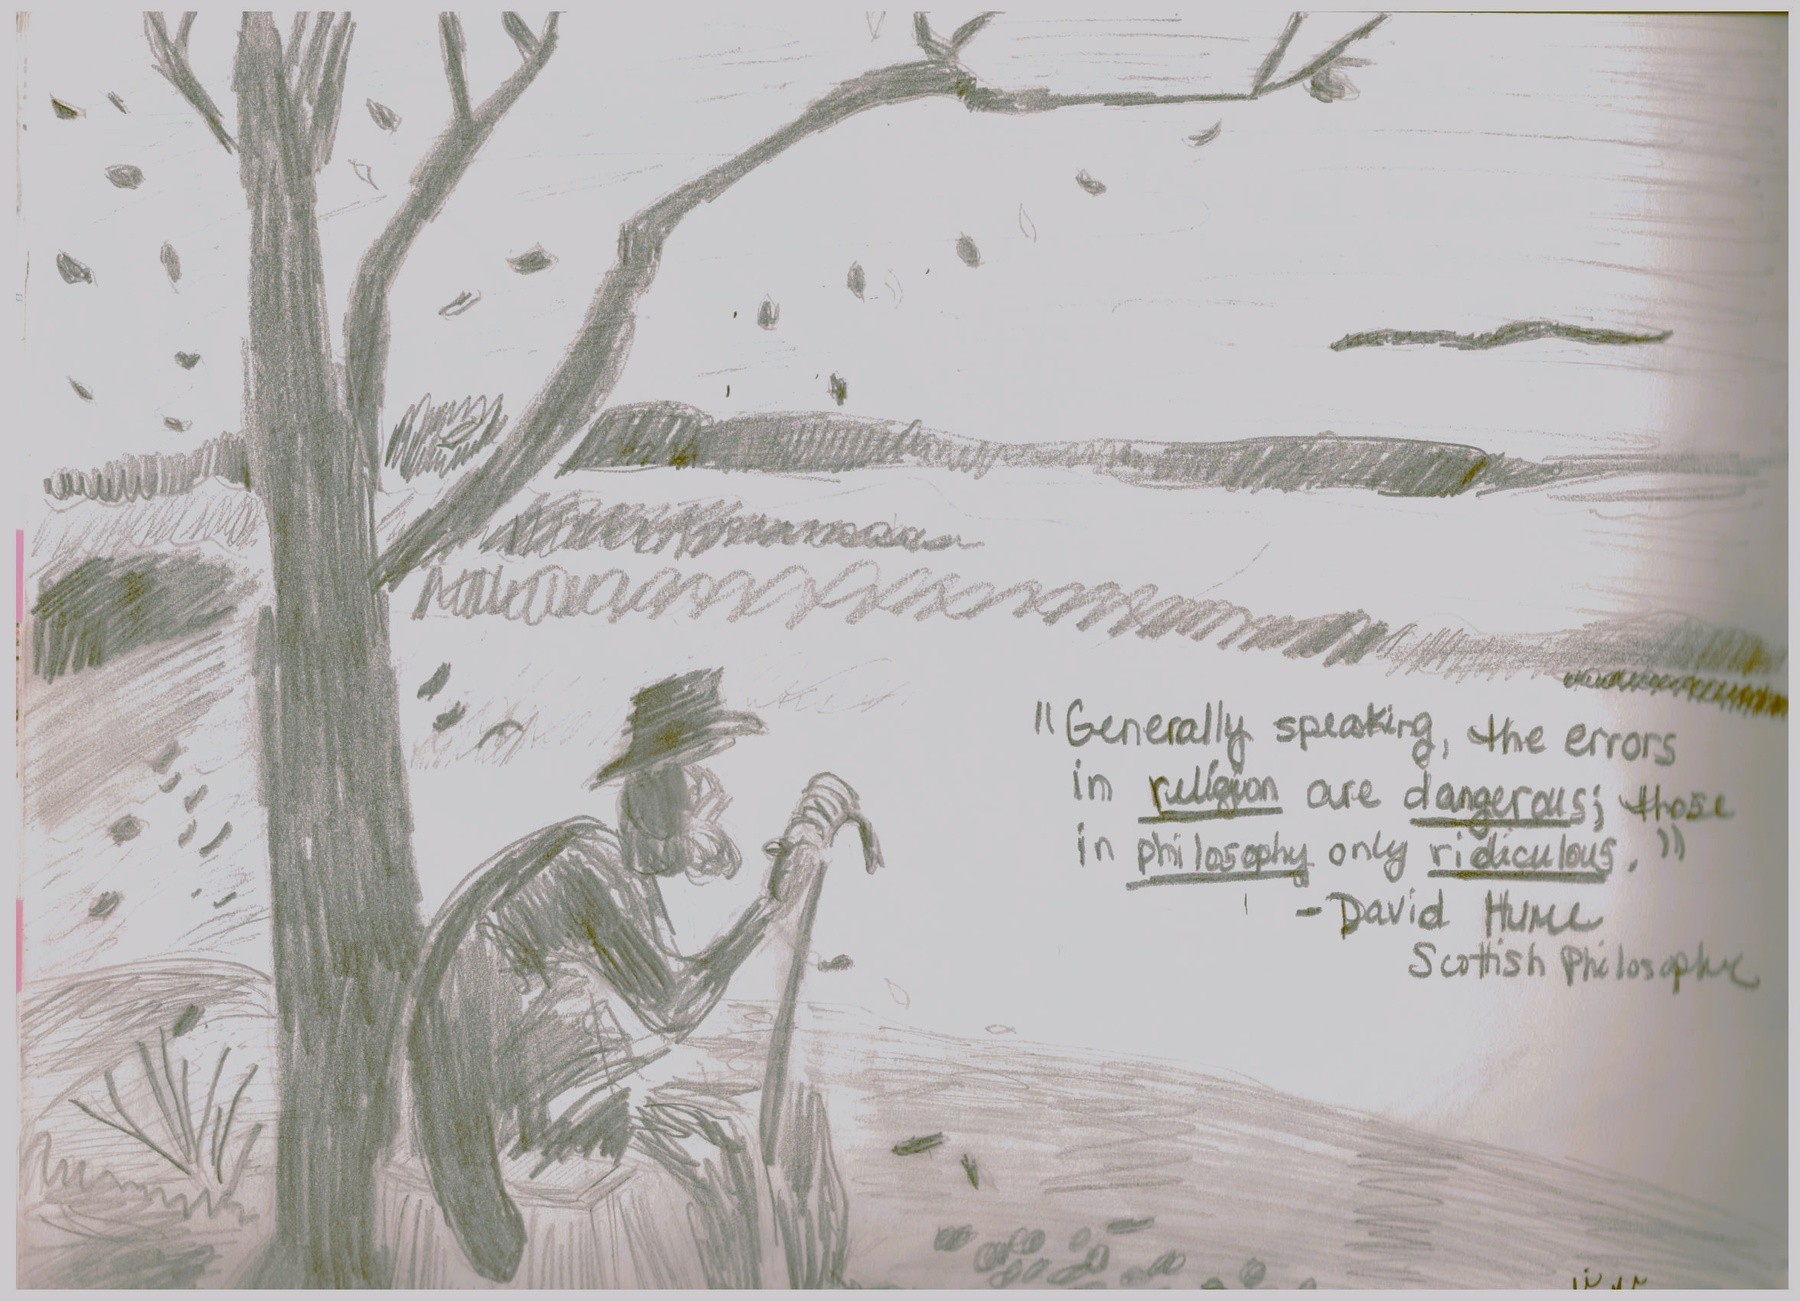 "Generally speaking, the errors
in religion are dangerous; those
in philosophy only ridiculous."
- David Hume
Scottish Philosopher